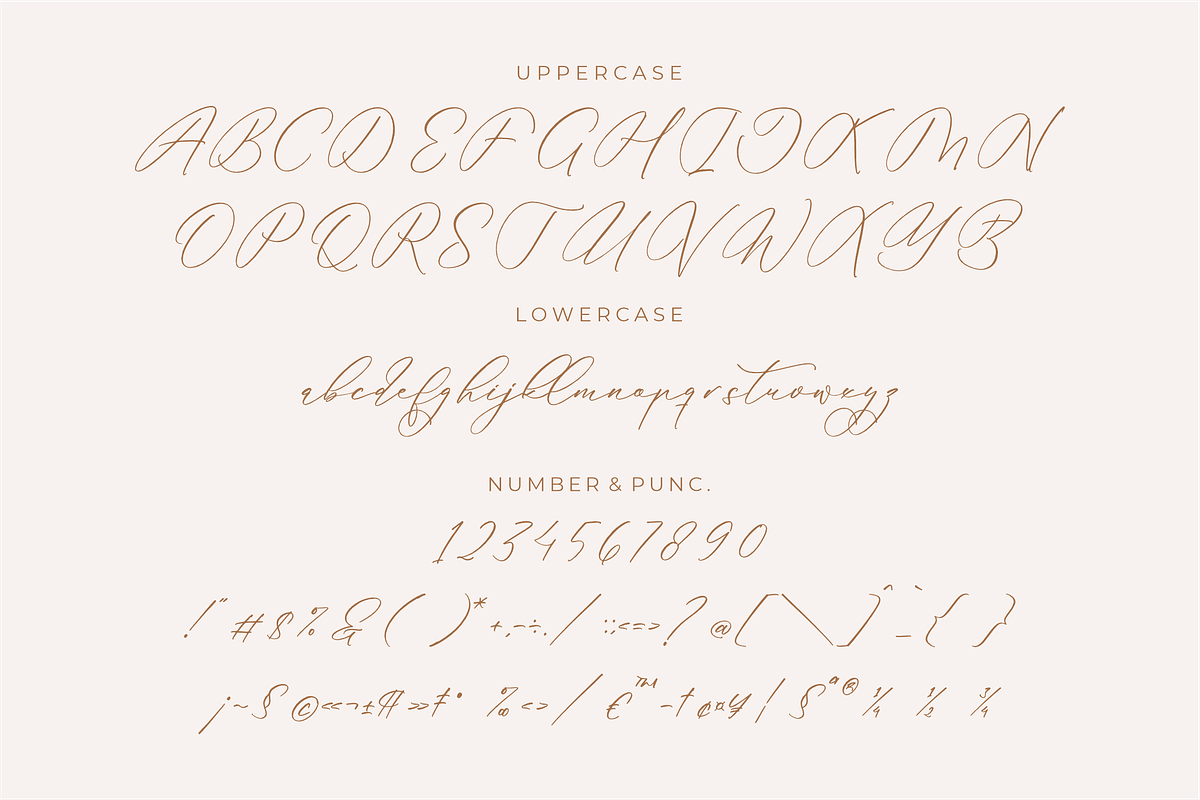 UPPERCASE
ABCDEFGHIJKMN
OPQRSTUVWXYZ
LOWERCASE
abcdefghijklmnopqrstuvwxyz
NUMBER & PUNC.
1234567890
!"#$%&( )*+,-÷./:;<=>?@[\]^_`{ }
¡~§©«¬±¶»‡° ‰‹›/€™-†¢¤¥¦§ª®¼ ½ ¾